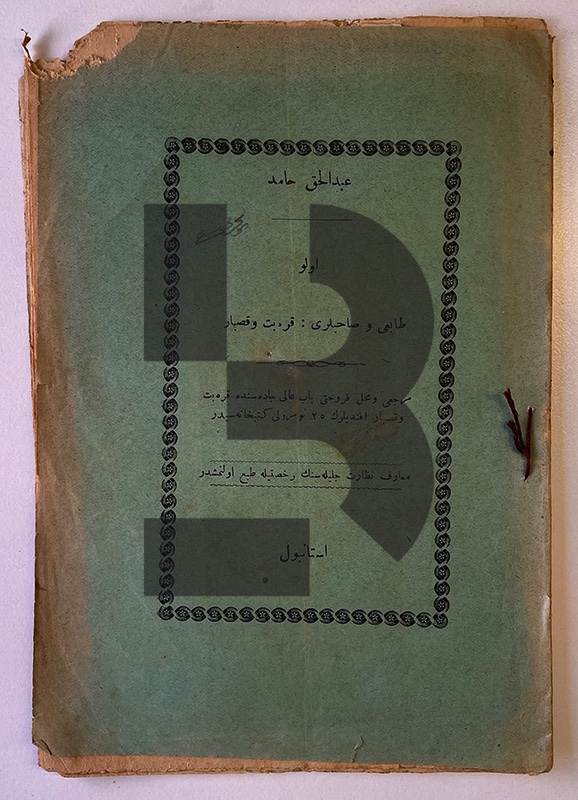 عبدالحق حامد
اولو
طابعی و صاحبلری : قره‌بت وقصبار
مرجعی ومحل فروختی باب عالی جاده‌سنده قره‌بت
وقصبار افندیلرك ٢٥ نومرولی كتبخانه‌سیدر
معارف نظارت جلیله‌سنك رخصتیله طبع اولنمشدر
استانبول